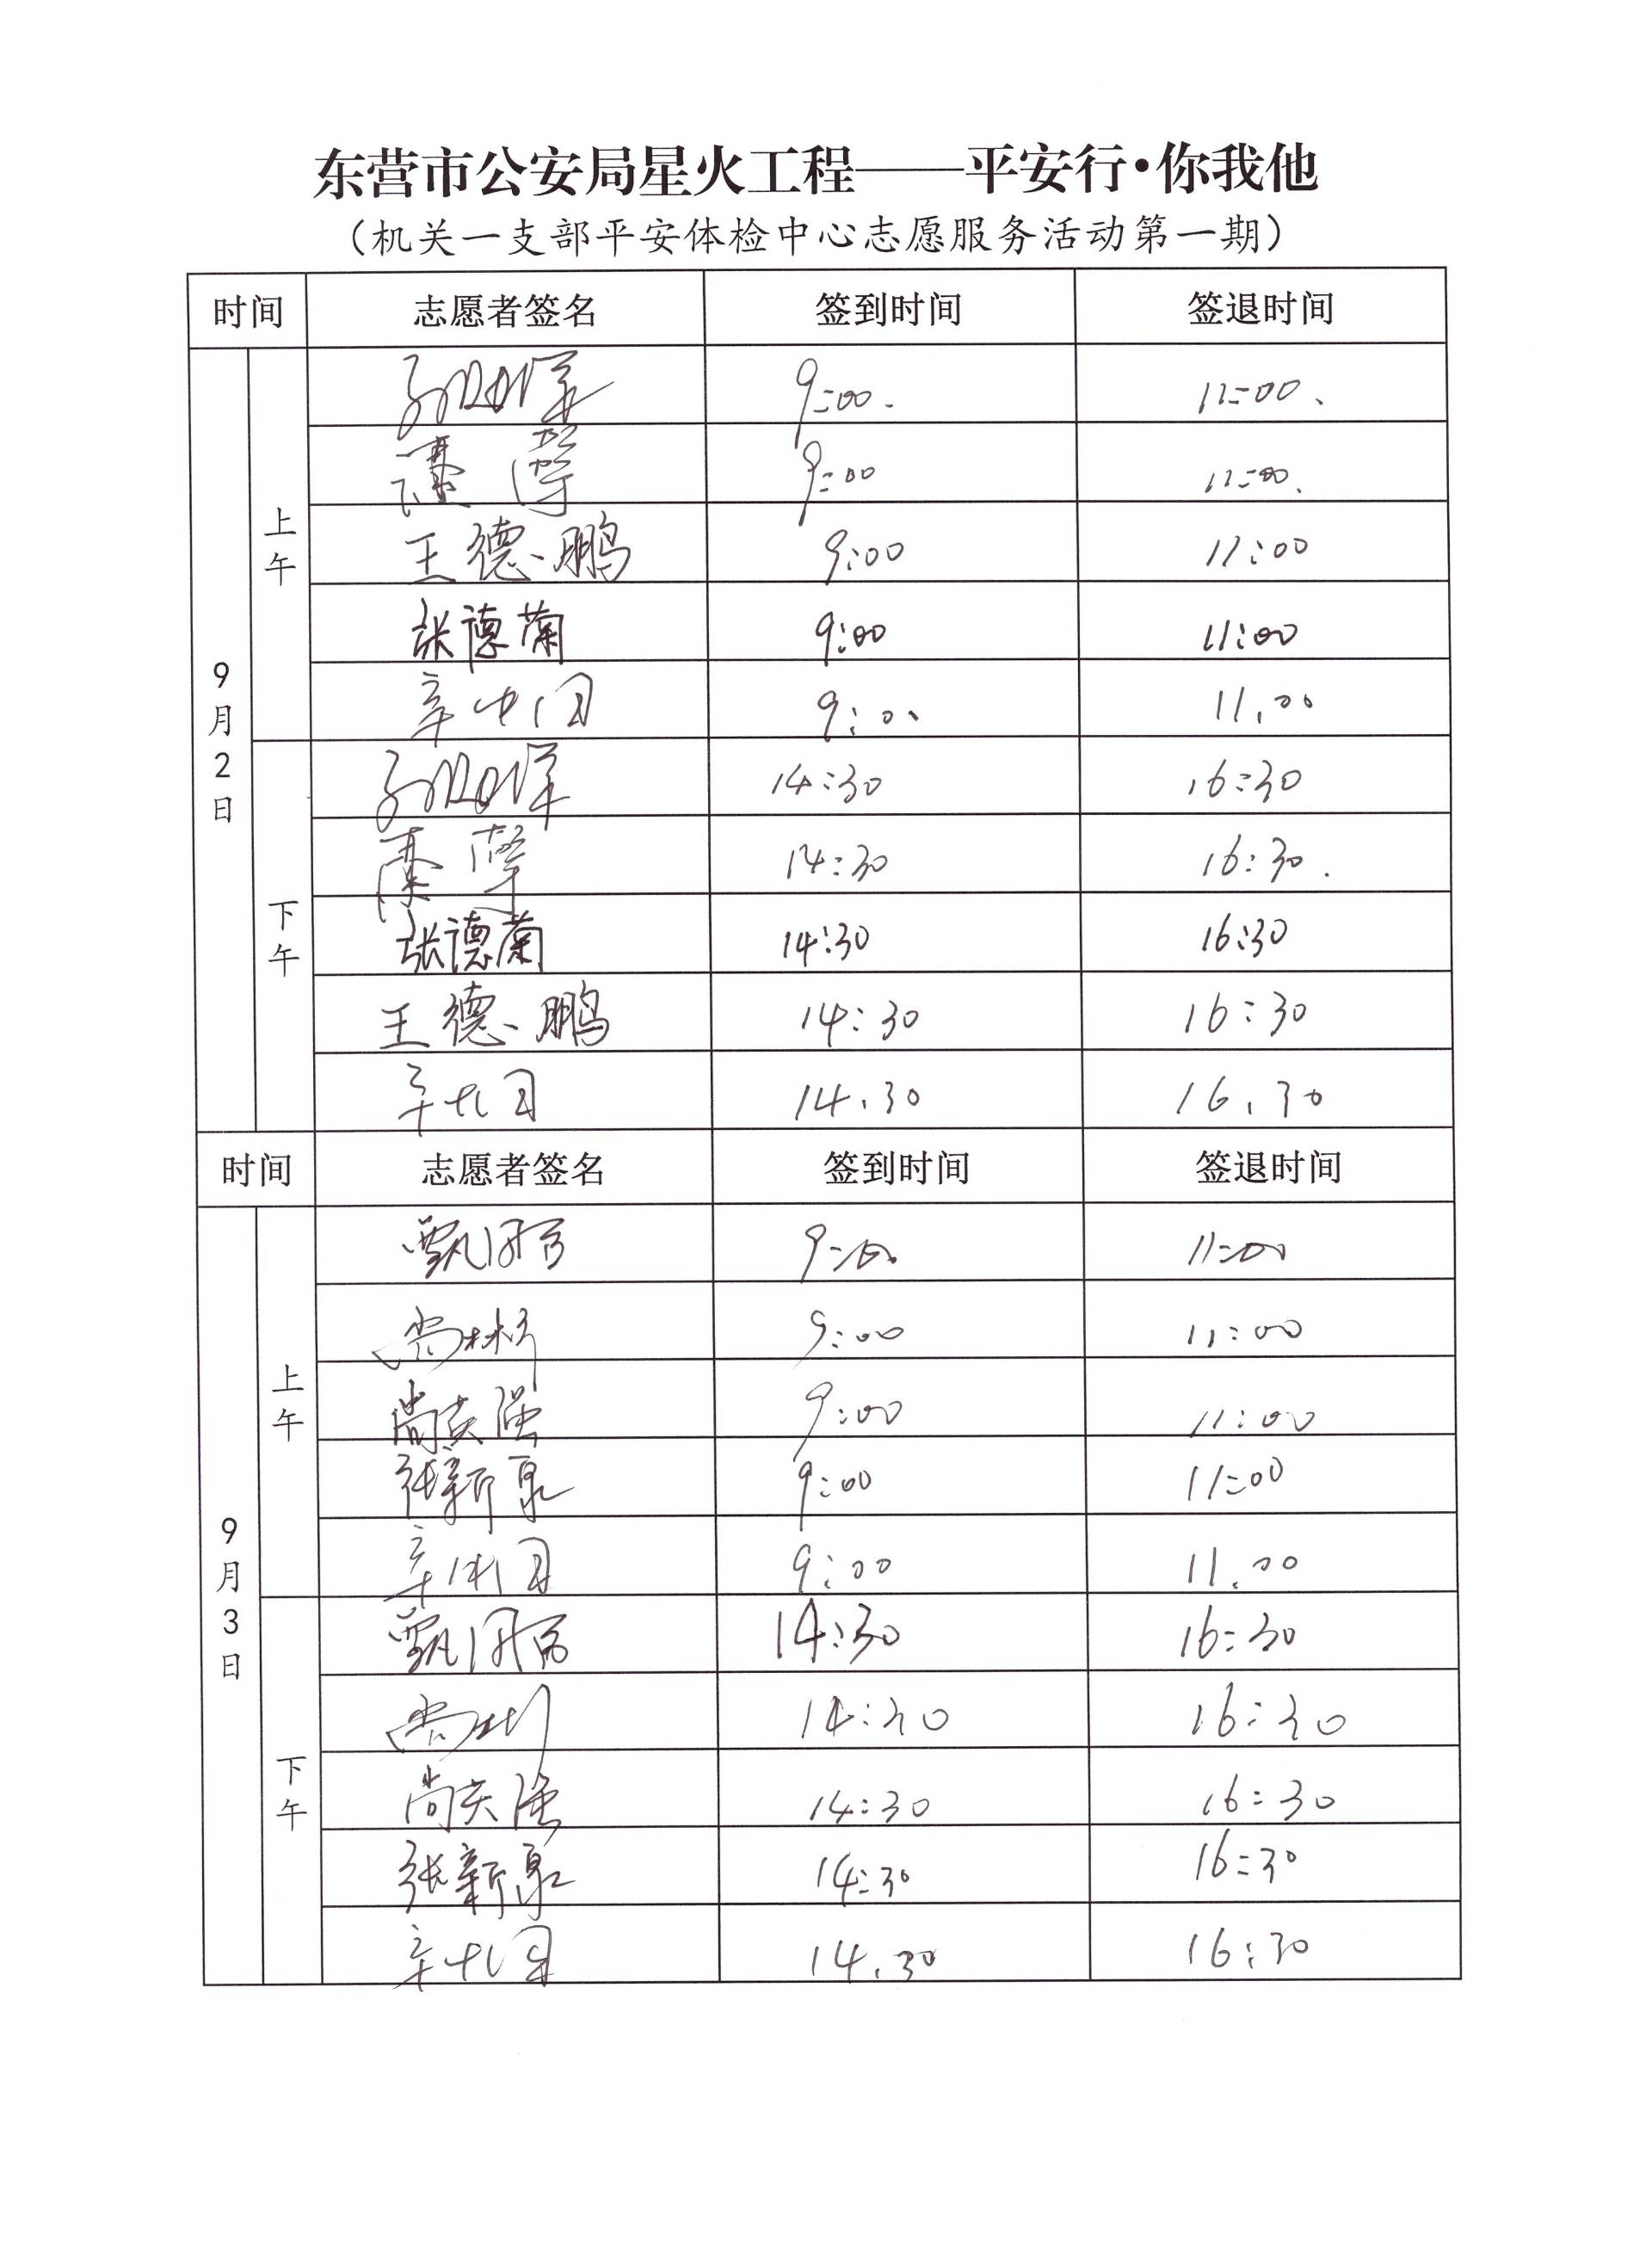 东营市公安局星火工程——平安行·你我他
（机关一支部平安体检中心志愿服务活动第一期）
时间 志愿者签名 签到时间 签退时间
9月2日
上午
9:00. 11:00.
9:00 11:00.
王德鹏 9:00 11:00
张德兰 9:00 11:00
9:00 11.00
下午
14:30 16:30
14:30 16:30.
张德兰 14:30 16:30
王德鹏 14:30 16:30
14.30 16.30
时间 志愿者签名 签到时间 签退时间
9月3日
上午
9:00 11:00
9:00 11:00
尚庆强 9:00 11:00
张新泉 9:00 11:00
9:00 11.00
下午
14:30 16:30
14:30 16:30
尚庆强 14:30 16:30
张新泉 14:30 16:30
14.30 16:30